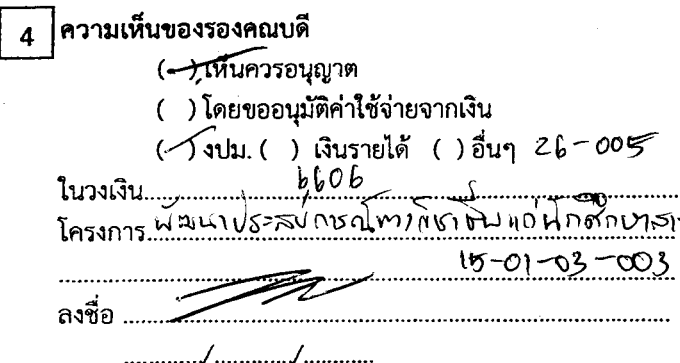 4 ความเห็นของรองคณบดี
(✓) เห็นควรอนุญาต
( ) โดยขออนุมัติค่าใช้จ่ายจากเงิน
(✓) งปม. ( ) เงินรายได้ ( ) อื่นๆ 26-005
ในวงเงิน 6606
โครงการ พัฒนาประสบการณ์ทางวิชาชีพแก่นักศึกษา
15-01-03-003
ลงชื่อ